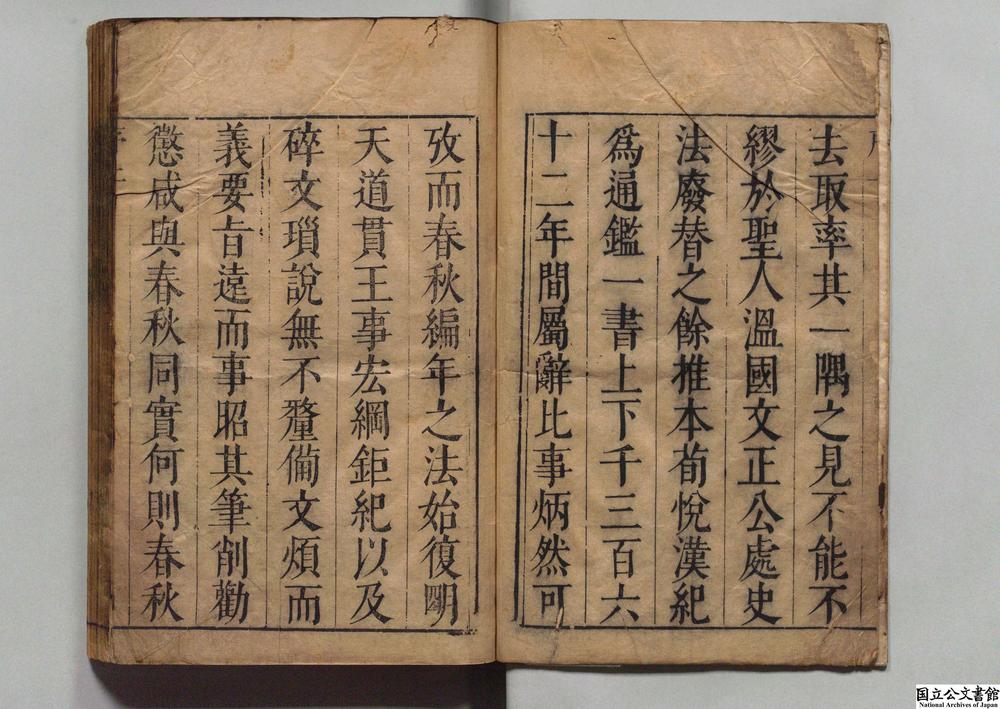 去取率共一隅之見不能不
繆於聖人溫國文正公處史
法廢替之餘推本荀悅漢紀
爲通鑑一書上下千三百六
十二年間屬辭比事炳然可
攷而春秋編年之法始復明
天道貫王事宏綱鉅紀以及
碎文瑣說無不釐備文煩而
義要旨遠而事昭其筆削勸
懲咸與春秋同實何則春秋
国立公文書館
National Archives of Japan